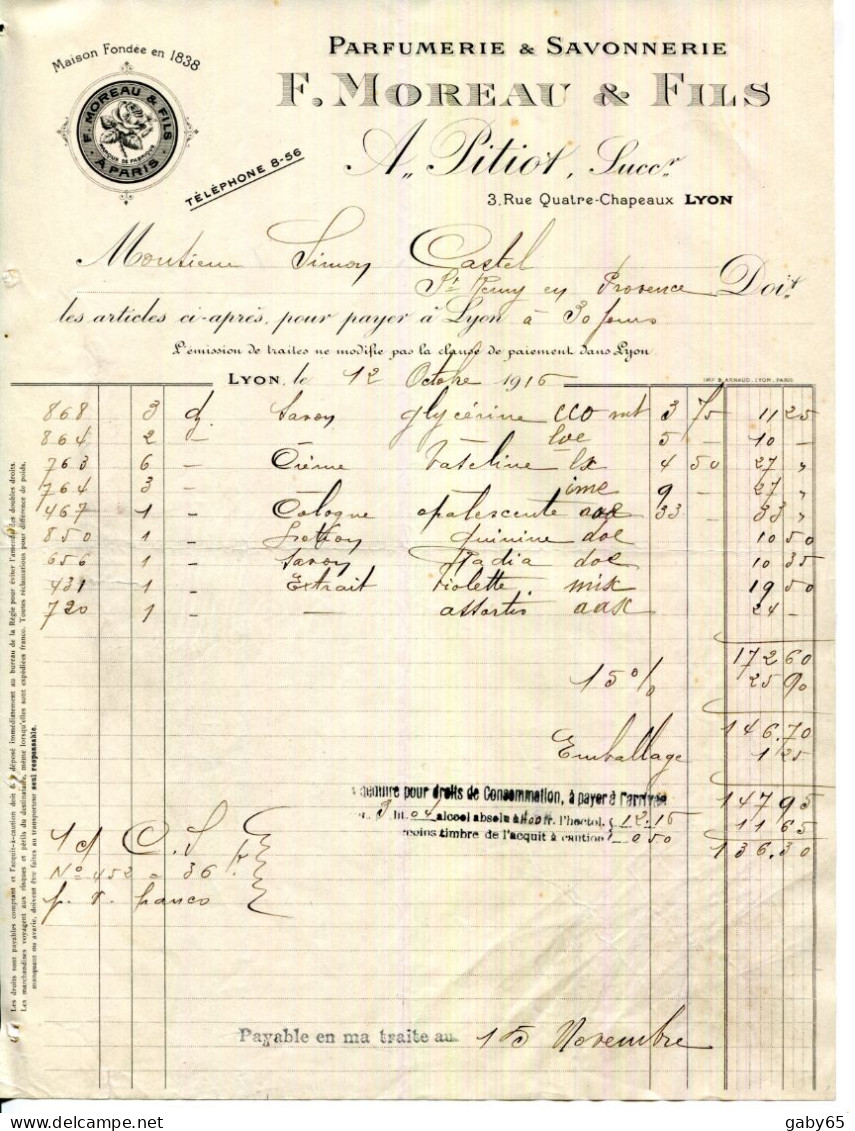 Maison Fondée en 1838
F. MOREAU & FILS
MARQUE DE FABRIQUE
A PARIS
PARFUMERIE & SAVONNERIE
F. MOREAU & FILS
A. Pitiot, Succr
TÉLÉPHONE 8-56
3, Rue Quatre-Chapeaux LYON
Monsieur Simon Castel
St Remy en Provence Doit
les articles ci-après, pour payer à Lyon à 30 jours
L'émission de traites ne modifie pas la clause de paiement dans Lyon.
LYON, le 12 Octobre 1916
IMP. B. ARNAUD, LYON, PARIS
868 3 dz. Savon glycérine CCO mt 3 75 11 25
864 2 — — lve 5 — 10 —
763 6 — Crème Vaseline lx 4 50 27 "
764 3 — — ime 9 — 27 "
467 1 — Cologne opalescente aoe 33 — 33 "
850 1 — Lotion quinine doe 10 50
656 1 — Savon Nadia doe 10 35
431 1 — Extrait violette mix 19 50
720 1 — — assortis aax 24 —
172 60
15 % 25 90
146.70
Emballage 1 25
147 95
à déduire pour droits de Consommation, à payer à l'arrivée
3 lit. 04 alcool absolu à 400 fr. l'hectol. 12.15
moins timbre de l'acquit à caution 0 50
11 65
136.30
1 c/ C. S
No 452 = 36 k.
p. v. franco
Payable en ma traite au 15 Novembre
Les droits sont payables comptant et l'acquit-à-caution doit être déposé immédiatement au bureau de la Régie pour éviter l'amende des doubles droits.
Les marchandises voyagent aux risques et périls du destinataire, même lorsqu'elles sont expédiées franco. Toutes réclamations pour différence de poids,
manquant ou avarie, doivent être faites au transporteur seul responsable.
delcampe.net
gaby65